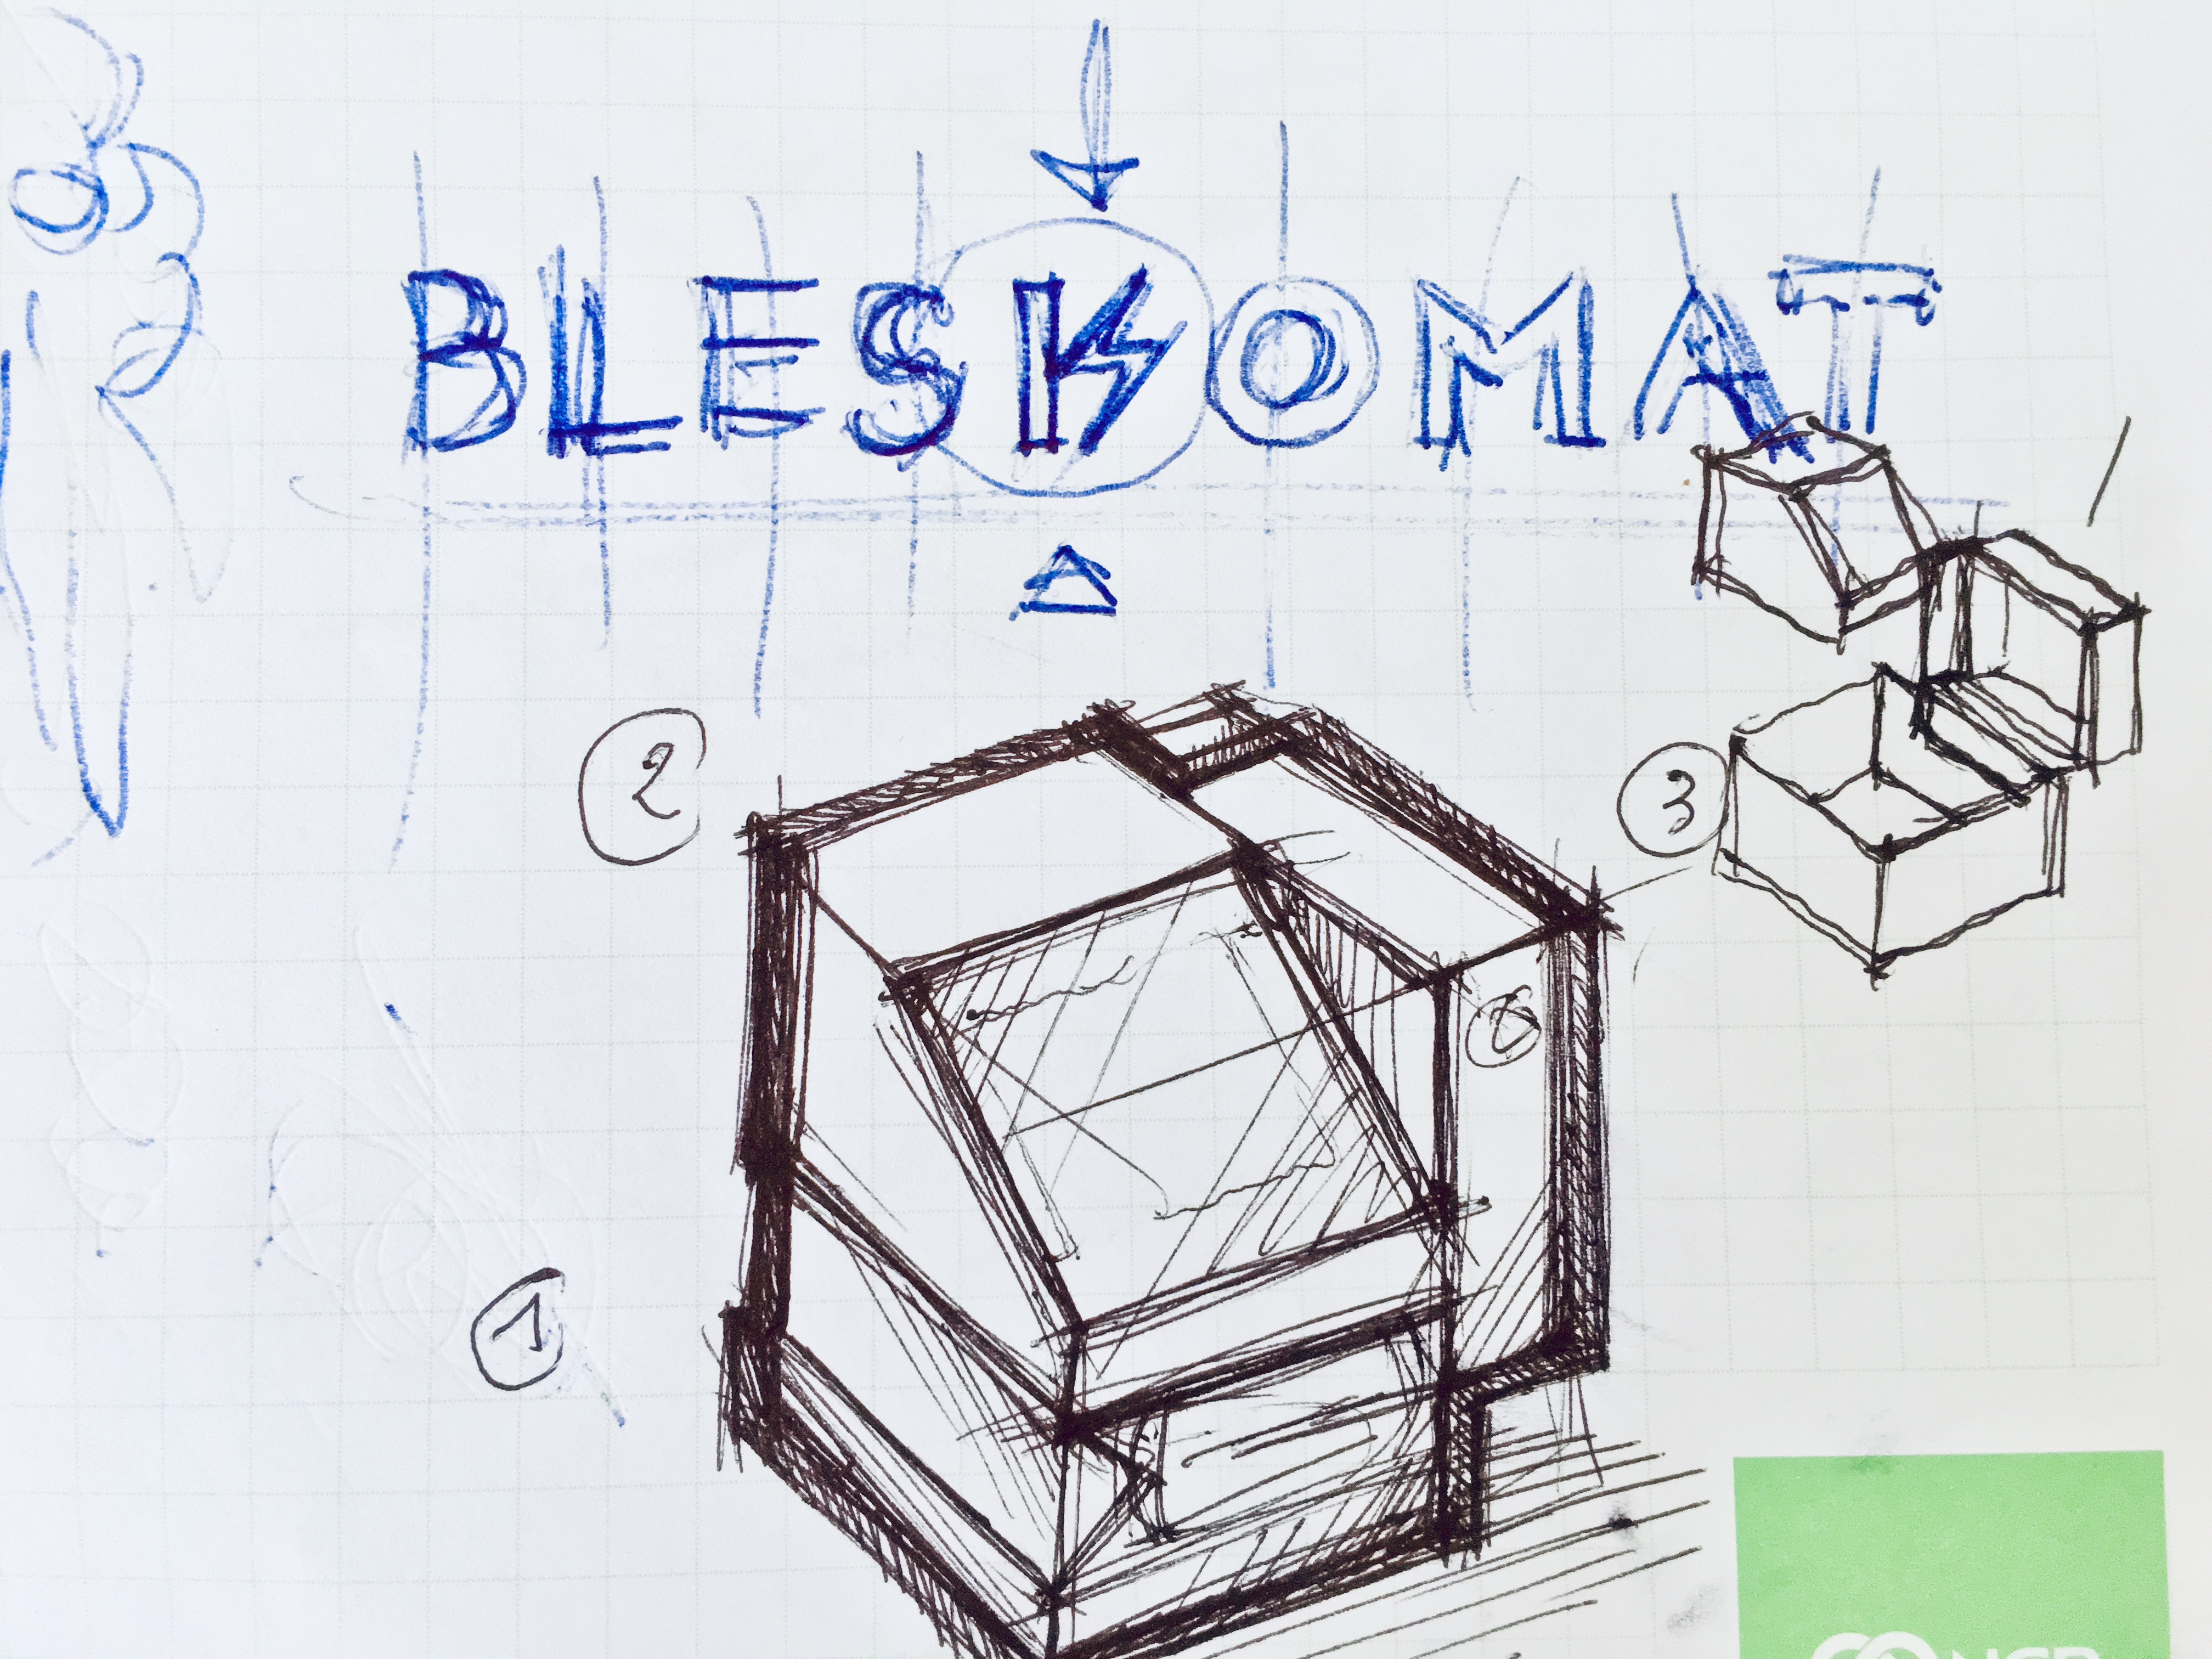 BLESKOMAT
2
3
1
NGR